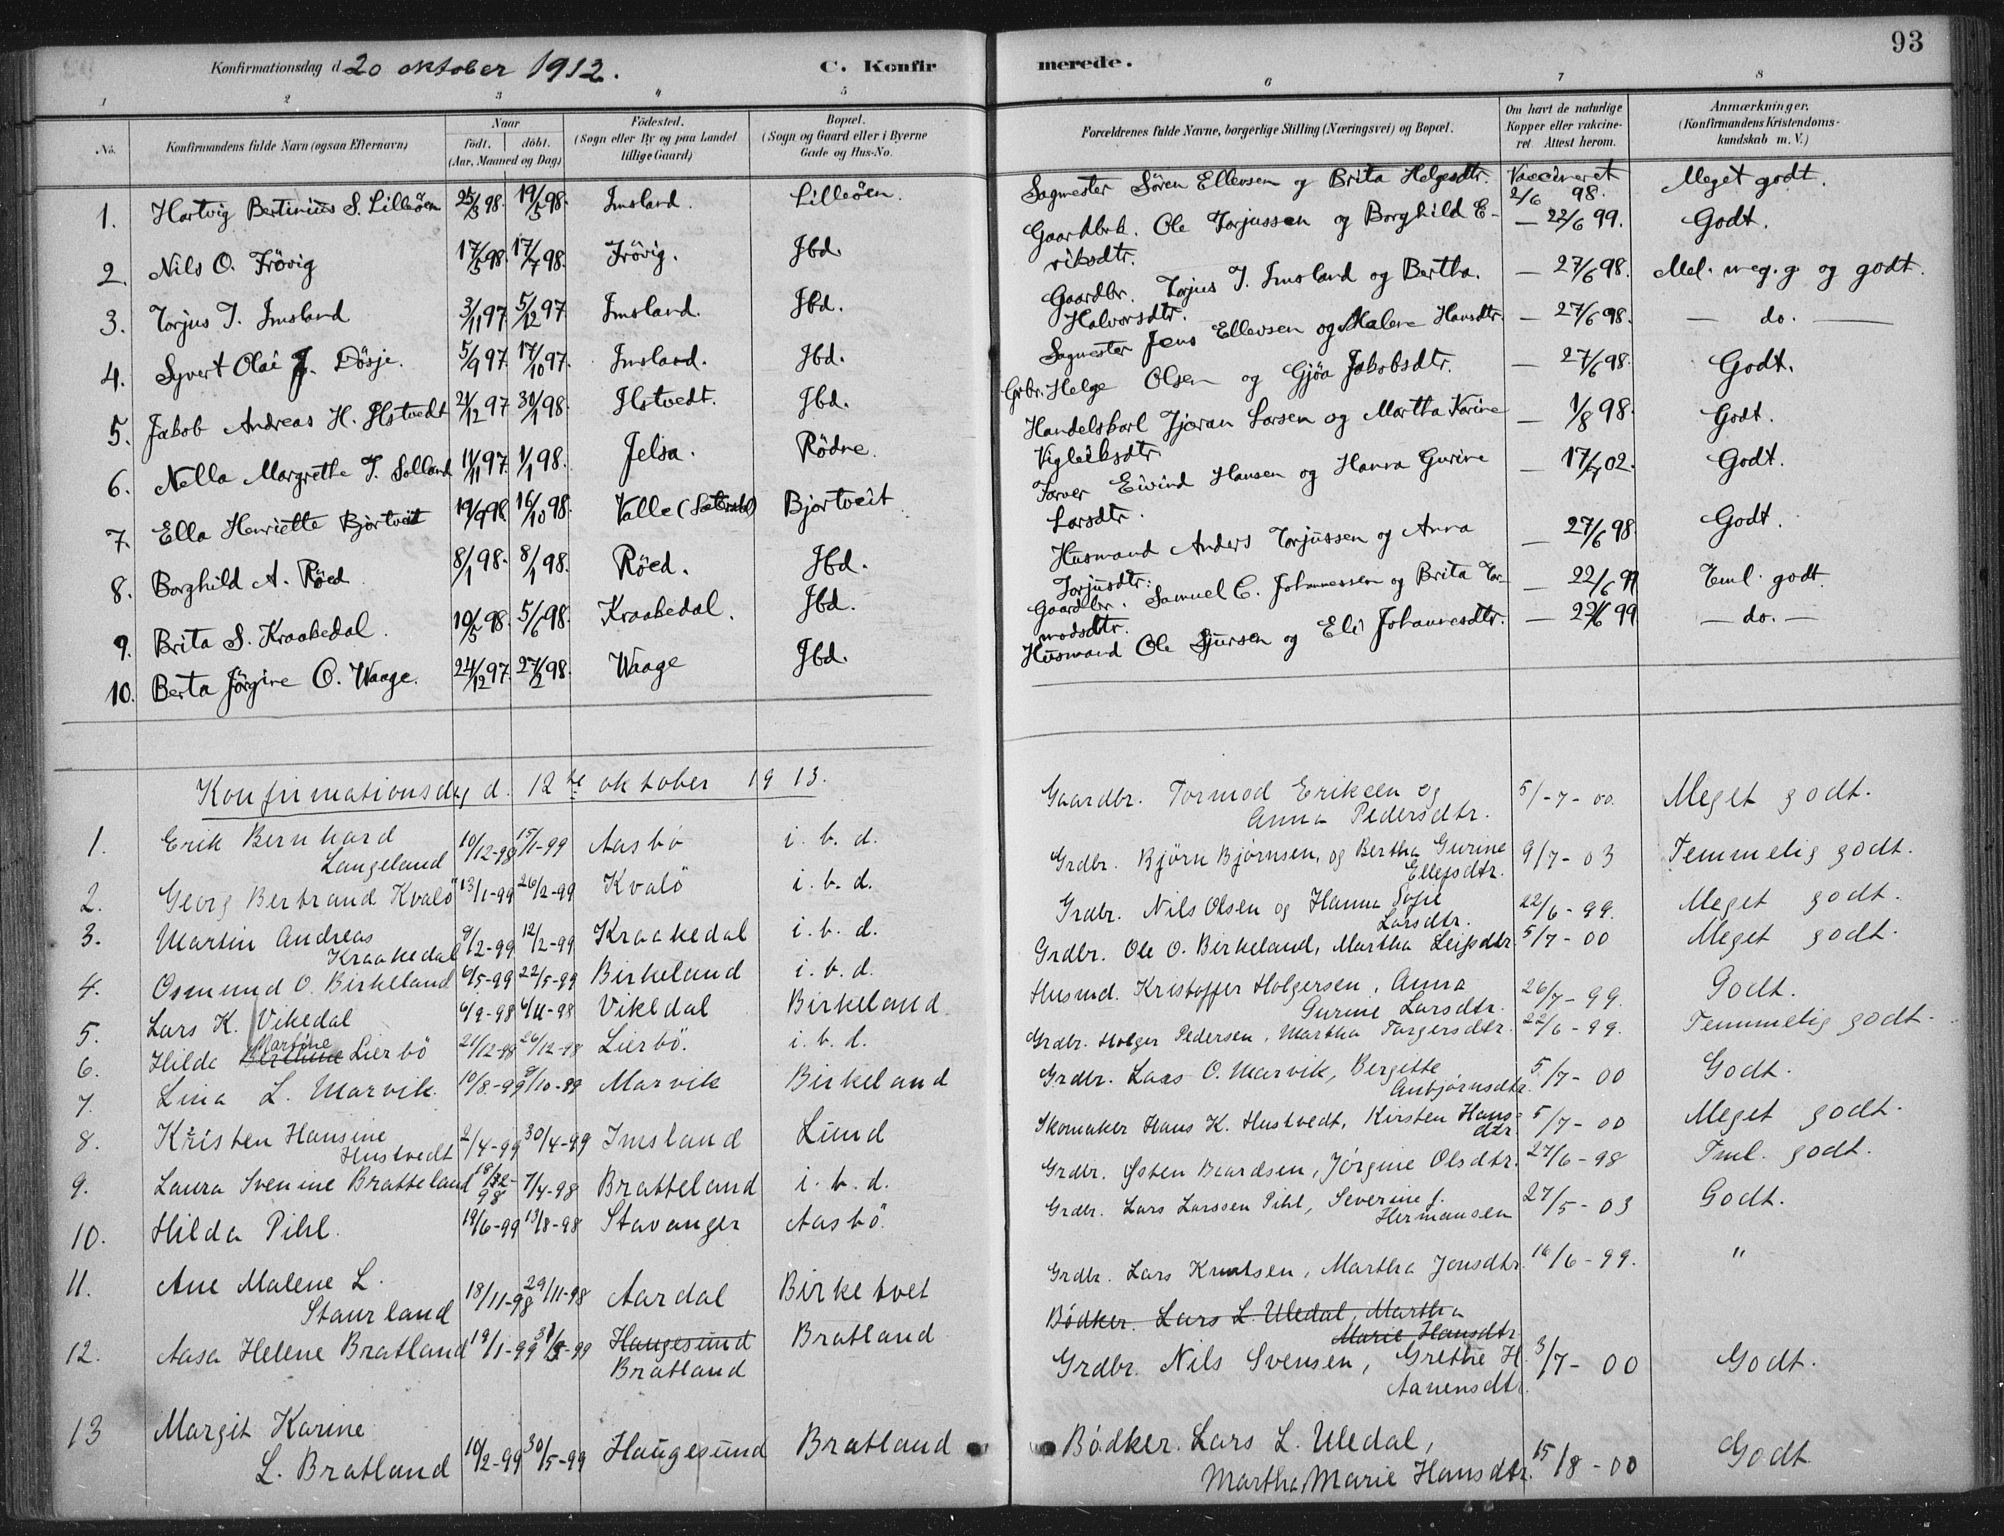 93
Konfirmationsdag d 20 oktober 1912. C. Konfir merede.
1 2 3 4 5 6 7 8
No. Konfirmandens fulde Navn (ogsaa Efternavn) Naar født. døbt. (Aar, Maaned og Dag) Fødested. (Sogn eller By og paa Landet tillige Gaard) Bopæl. (Sogn og Gaard eller i Byerne Gade og Hus-No. Forældrenes fulde Navne, borgerlige Stilling (Næringsvei) og Bopæl. Om havt de naturlige Kopper eller vakcineret Attest herom. Anmærkninger. (Konfirmandens Kristendomskundskab m. V.)
1. Hartvig Bertinius S. Lilleöen 25/3 98. 19/5 98. Imsland. Lilleöen. Sagmester Sören Ellevsen og Brita Helgesdtr. Vaccineret 2/6 98. Meget godt.
2. Nils O. Frövig 17/5 98. 17/7 98. Frövig. Ibd. Gaardbrk. Ole Torjussen og Borghild Eriksdtr. — 22/6 99. Godt.
3. Torjus T. Imsland 3/11 97. 5/12 97. Imsland. Ibd. Gaardbr. Torjus T. Imsland og Bertha Halvorsdtr. — 27/6 98. Mel. meg. g. og godt.
4. Syvert Olai J. Dösje. 5/9 97. 17/10 97. Imsland. Ibd. Sagmester Jens Ellevsen og Malene Hansdtr. — 27/6 98. — do. —
5. Jakob Andreas H. Ilstvedt 21/12 97 30/1 98. Ilstvedt. Ibd. Grbr. Helge Olsen og Gjöa Jakobsdtr. — 27/6 98. Godt.
6. Nella Margrethe T. Solland 11/11 97. 1/1 98. Jelsa. Rödne. Handelskarl Tjæran Larsen og Martha Karine Vigleiksdtr — 1/8 98. Godt.
7. Ella Henriette Bjortveit 19/9 98. 16/10 98. Valle (Sætersd) Bjortveit Farver Eivind Hansen og Hanna Gurine Larsdtr. — 17/7 02. Godt.
8. Borghild A. Röed. 8/1 98. 8/1 98. Röed. Ibd. Husmand Anders Torjussen og Anna Torjusdtr. — 27/6 98 Godt.
9. Brita S. Kraakedal. 10/5 98. 5/6 98. Kraakedal. Ibd. Gaardbr. Samuel C. Johannessen og Brita Tormodsdtr. — 22/6 99 Teml. godt.
10. Berta Jörgine O. Waage. 24/12 97. 27/2 98. Waage Ibd. Husmand Ole Sjursen og Eli Johannesdtr. — 22/6 99 — do. —
Konfirmationsdag d. 12te oktober 1913.
1. Erik Bernhard Langeland 10/12-98 15/1-99 Aasbö i. b. d. Gaardbr. Tormod Eriksen og Anna Pedersdtr. 5/-7-00. Meget godt.
2. Georg Bertrand Kvalö 13/1-99 26/2-99 Kvalö i. b. d. Grdbr. Björn Bjørnsen, og Bertha Gurine Ellefsdtr. 9/7-03 Temmelig godt.
3. Martin Andreas Kraakedal 9/2-99 12/2-99 Kraakedal i. b. d. Grdbr. Nils Olsen og Hanna Sofie Larsdtr. 22/6-99. Meget godt.
4. Osmund O. Birkeland 6/5-99 22/5-99 Birkeland i. b. d. Grdbr. Ole O. Birkeland, Martha Leifsdtr. 5/7-00 Meget godt.
5. Lars K. Vikedal 6/9-98 6/11-98 Vikedal Birkeland. Husmd. Kristoffer Holgersen, Anna Gurine Larsdtr. 26/7-99. Godt.
6. Hilda Martine Lierbö 21/12-98 26/12-98 Lierbö. i. b. d. Grdbr. Holger Pedersen, Martha Torgersdtr. 22/6-99. Temmelig godt.
7. Lina L. Marvik. 10/8-99 9/10-99 Marvik Birkeland Grdbr. Lars O. Marvik, Bergitte Anbjørnsdtr. 5/7-00 Godt.
8. Kristen Hansine Hustvedt 2/4-99 30/4-99 Imsland Lund Skomaker Hans K. Hustvedt, Kirsten Hansdtr. 5/7-00 Meget godt.
9. Laura Svenine Bratteland 98 7/4-98 Bratteland i. b. d. Grdbr. Østen Baardsen, Jörgine Olsdtr. 27/6-98 Tml. godt.
10. Hilda Pihl. 19/6-99 13/8-98 Stavanger Aasbö Grdbr. Lars Larssen Pihl, Severine J. Hermansen 27/5-03 Godt.
11. Ane Malene L. Staurland 18/11-98 29/11-98 Aardal Birketvet Grdbr. Lars Knutsen, Martha Jonsdtr. 16/6-99. "
Bödker. Lars L. Uledal, Martha Marie Hansdtr
12. Aasa Helene Bratland 19/1-99 31/3-99 Haugesund Bratland Bratland Grdbr. Nils Svensen, Grethe H. Aanensdtr. 3/7-00 Godt.
13 Margit Karine L. Bratland 10/2-99 30/5-99 Haugesund Bratland Bödker. Lars L. Uledal, Martha Marie Hansdtr. 15/8-00 Godt